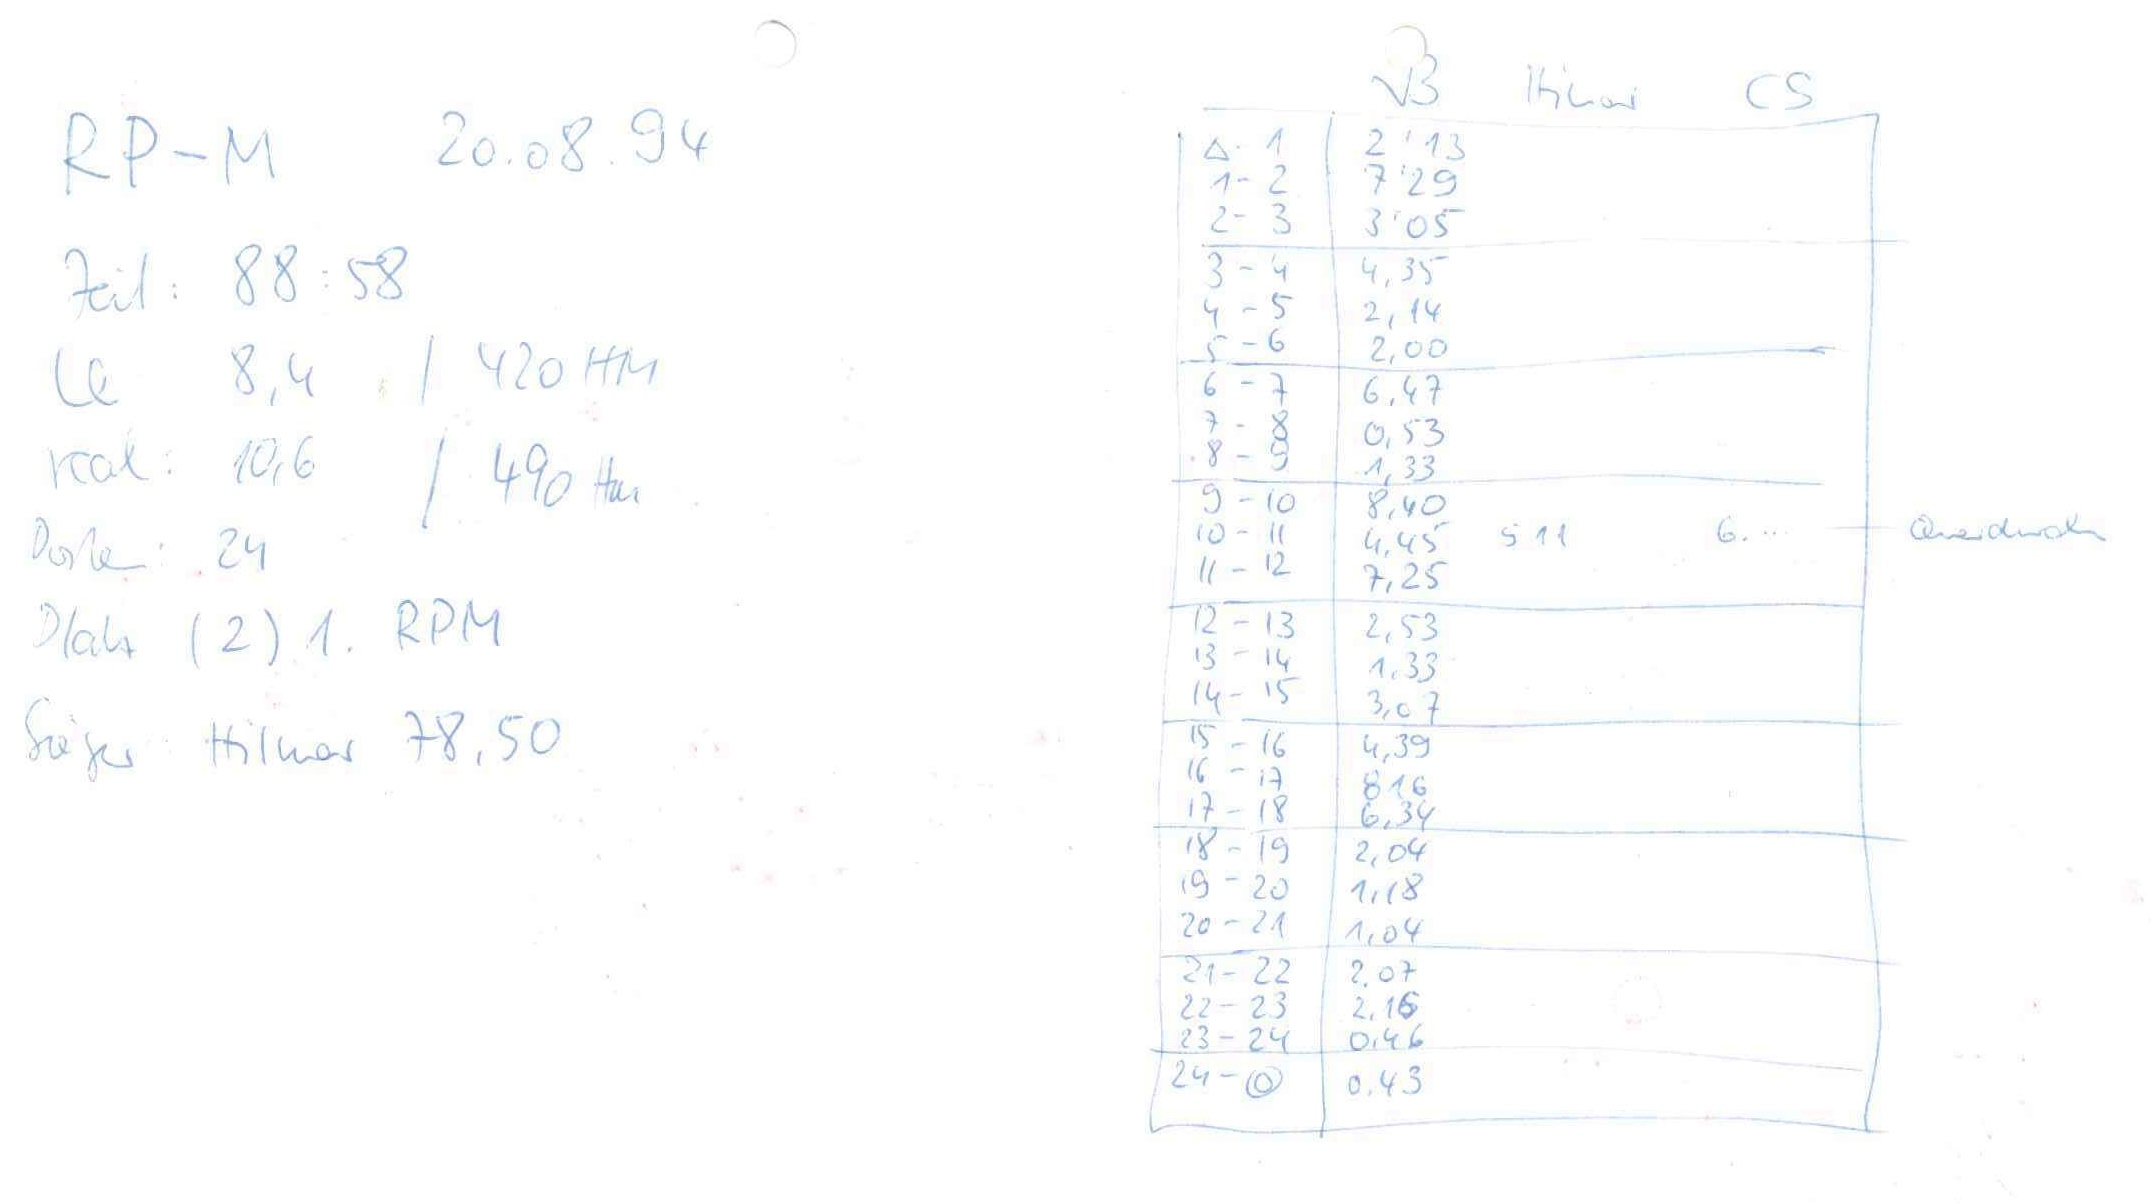 RP-M 20.08.94
Zeit: 88:58
LE 8,4 / 420 HM
real: 10,6 / 490 Hm
Posten: 24
Platz (2) 1. RPM
Sieger Hilmar 78,50
VB Hilmar CS
Δ - 1 2'13
1 - 2 7'29
2 - 3 3'05
3 - 4 4,35
4 - 5 2,14
5 - 6 2,00
6 - 7 6,47
7 - 8 0,53
8 - 9 1,33
9 - 10 8,40
10 - 11 4,45 5 11 6. ...
11 - 12 7,25
12 - 13 2,53
13 - 14 1,33
14 - 15 3,07
15 - 16 4,39
16 - 17 816
17 - 18 6,34
18 - 19 2,04
19 - 20 1,18
20 - 21 1,04
21 - 22 2,07
22 - 23 2,16
23 - 24 0,46
24 - ◎ 0,43